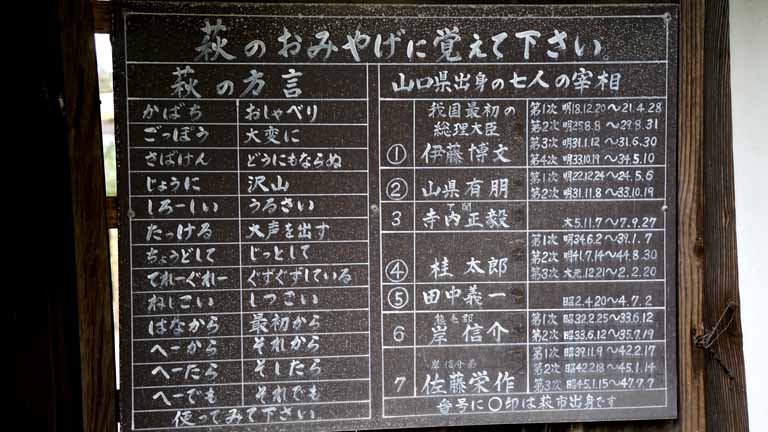 萩のおみやげに覚えて下さい。
萩の方言
かばち おしゃべり
ごっぽう 大変に
さばけん どうにもならぬ
じょうに 沢山
しろーしい うるさい
たっける 大声を出す
ちょうどして じっとして
てれーぐれー ぐずぐずしている
ねしこい しつこい
はなから 最初から
へーから それから
へーたら そしたら
へーでも それでも
使ってみて下さい
山口県出身の七人の宰相
我国最初の
総理大臣
① 伊藤博文
第1次 明18.12.20〜21.4.28
第2次 明25.8.8〜29.8.31
第3次 明31.1.12〜31.6.30
第4次 明33.10.19〜34.5.10
② 山県有朋
第1次 明22.12.24〜24.5.6
第2次 明31.11.8〜33.10.19
下関
3 寺内正毅
大5.11.7〜7.9.27
④ 桂 太郎
第1次 明34.6.2〜39.1.7
第2次 明41.7.14〜44.8.30
第3次 大元.12.21〜2.2.20
⑤ 田中義一
昭2.4.20〜4.7.2
熊毛郡
6 岸 信介
第1次 昭32.2.25〜33.6.12
第2次 昭33.6.12〜35.7.19
岸信介弟
7 佐藤栄作
第1次 昭39.11.9〜42.2.17
第2次 昭42.2.18〜45.1.14
第3次 昭45.1.15〜47.7.7
番号に〇印は萩市出身です